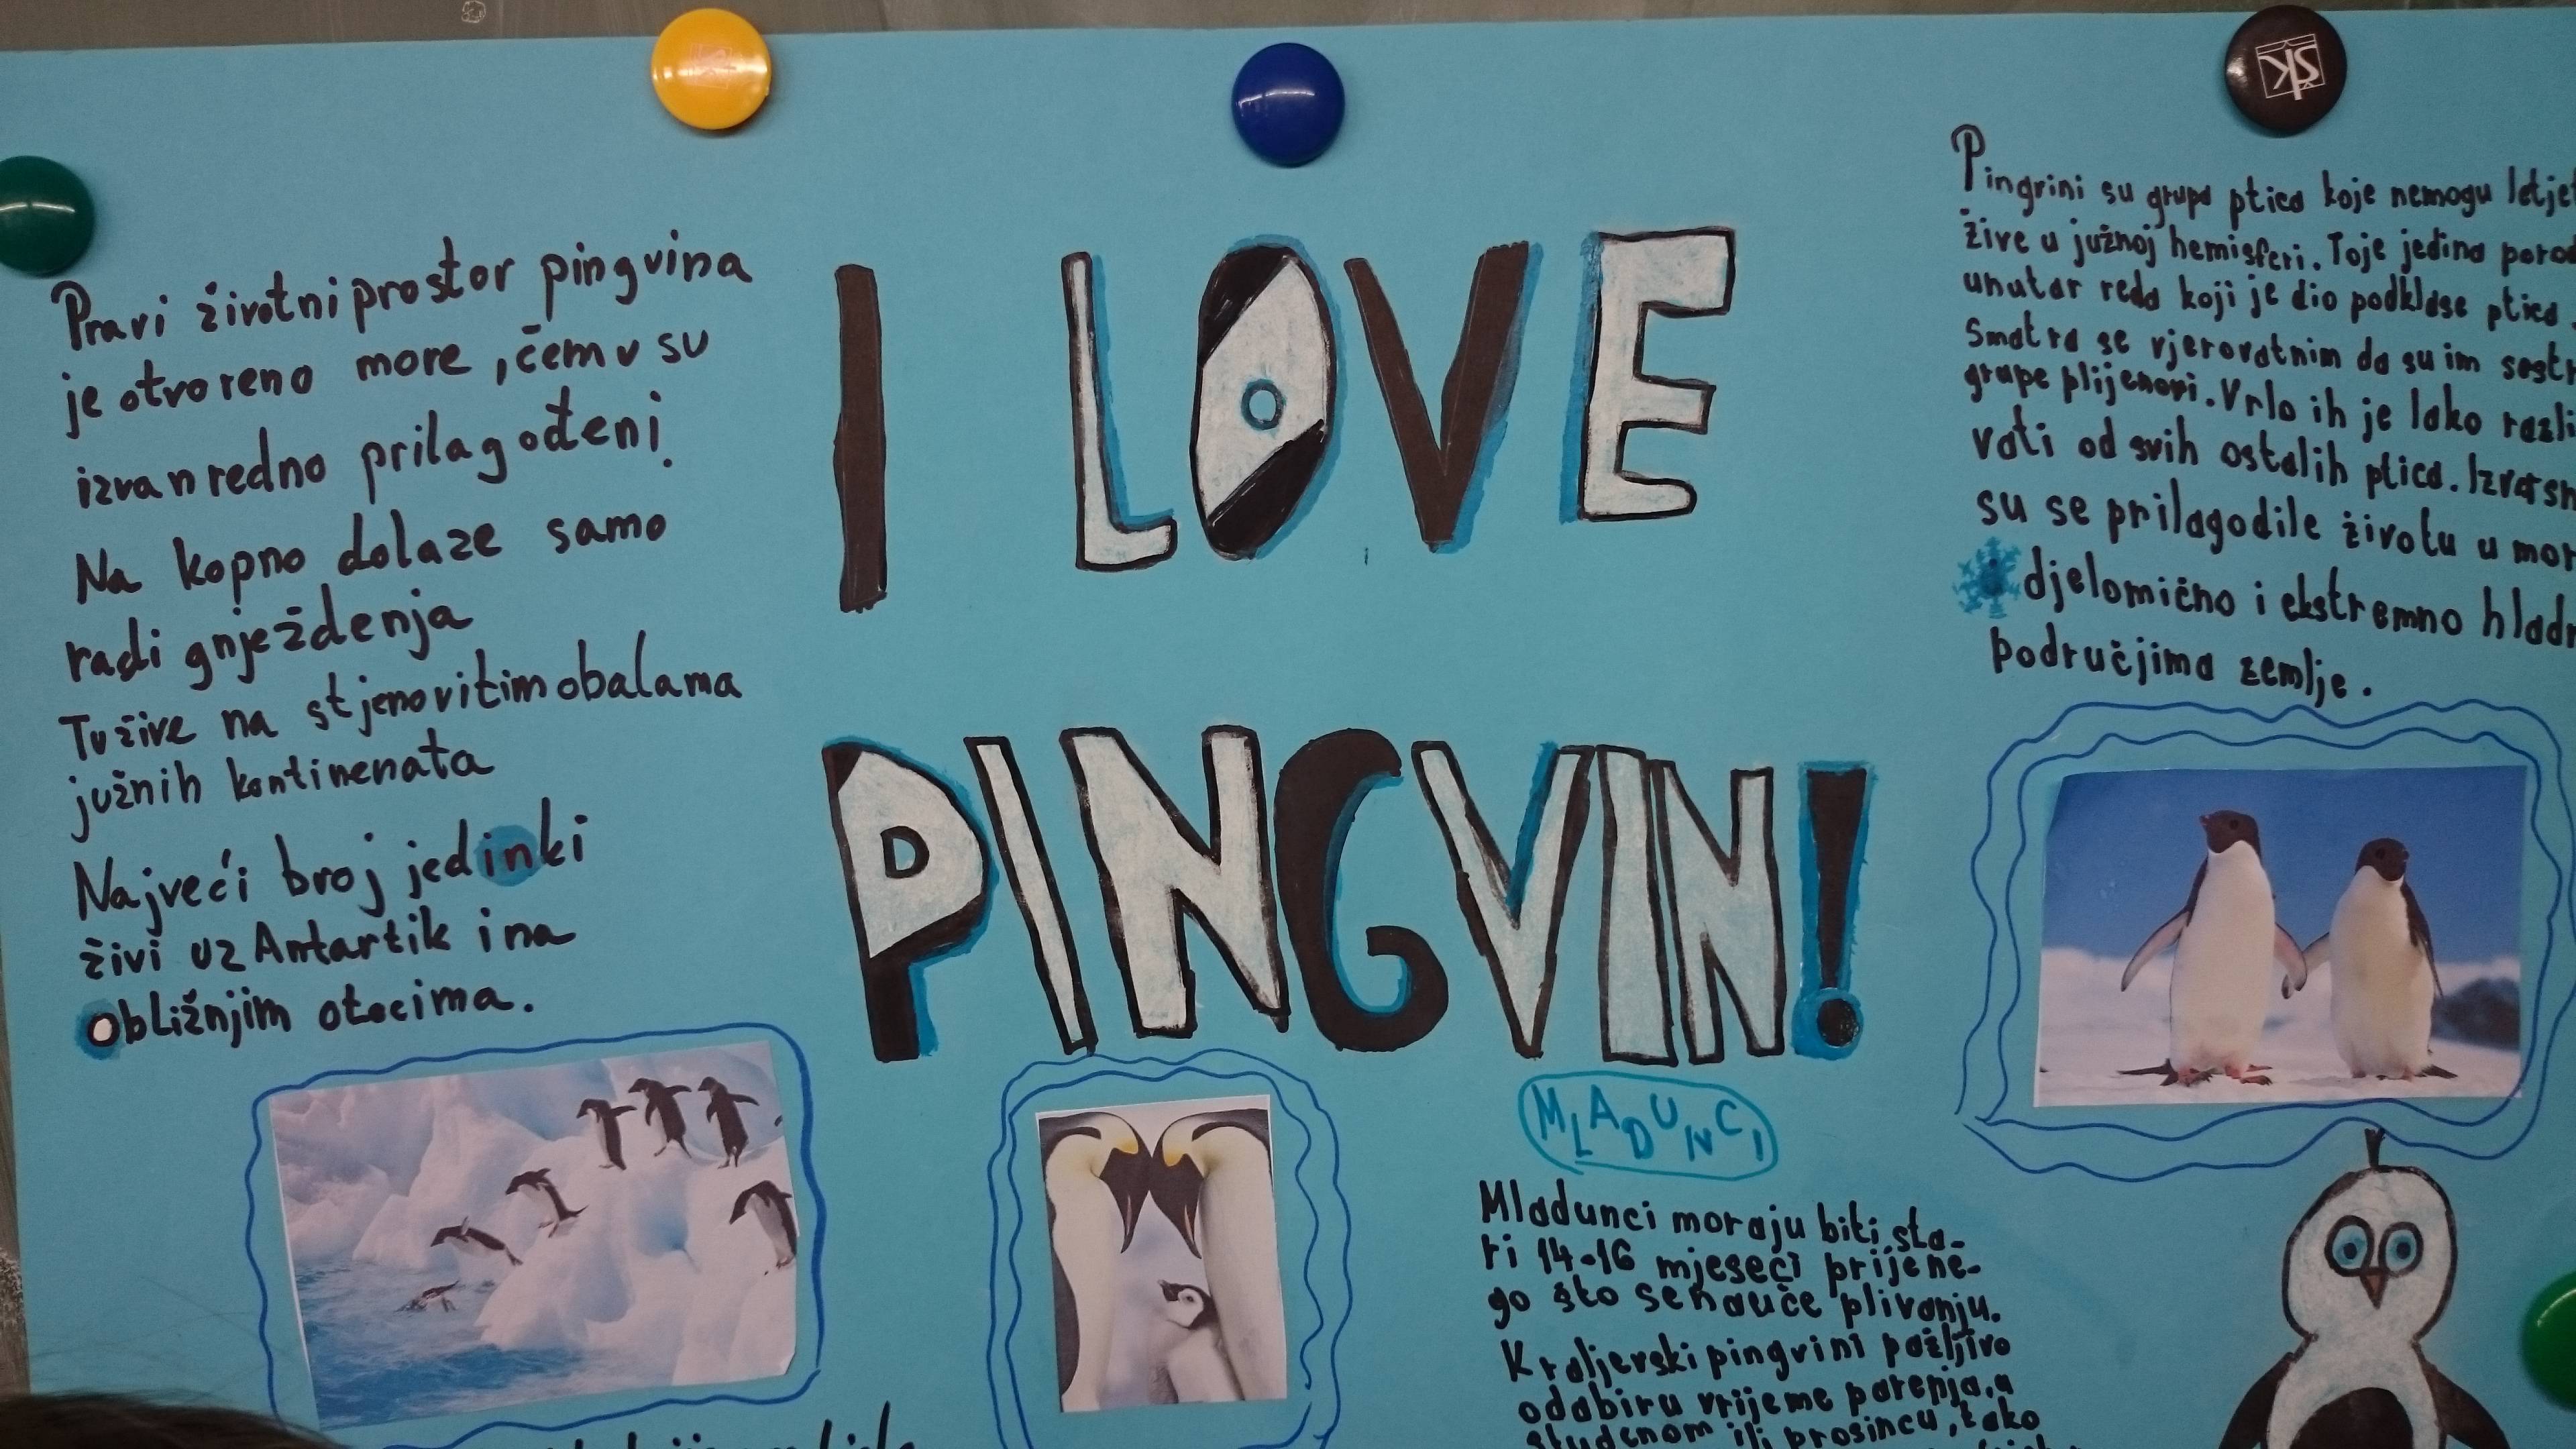 Pravi životni prostor pingvina
je otvoreno more, čemu su
izvanredno prilagođeni.
Na kopno dolaze samo
radi gnježđenja
Tu žive na stjenovitim obalama
južnih kontinenata
Najveći broj jedinki
živi uz Antartik i na
obližnjim otocima.
I LOVE
PINGVIN!
Pingvini su grupa ptica koje nemogu letjet
žive u južnoj hemisferi. Toje jedina porod
unutar reda koji je dio podklase ptica.
Smatra se vjerovatnim da su im sestr
grupe plijenori. Vrlo ih je lako razli
vati od svih ostalih ptica. Izvrsn
su se prilagodile životu u mor
djelomično i ekstremno hladn
područjima zemlje.
MLADUNCI
Mladunci moraju biti sta-
ri 14-16 mjeseci prije ne-
go što se nauče plivanju.
Kraljevski pingvini pažljivo
odabiru vrijeme parenja, u
studenom ili prosincu, tako
ŠK